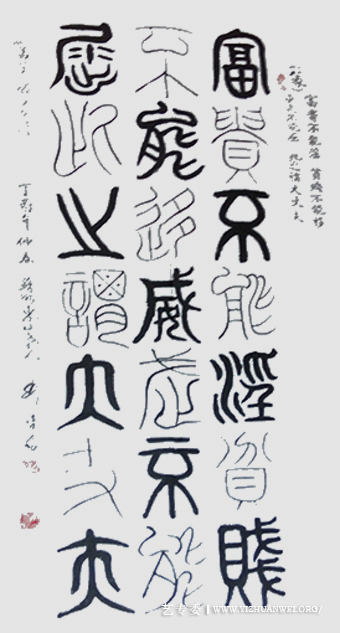 富貴不能淫 貧賤不能移
威武不能屈 此之謂大丈夫
富貴不能淫貧賤
不能移威武不能
屈此之謂大丈夫
艺专委 | WWW.YIZHUANWEI.ORG/